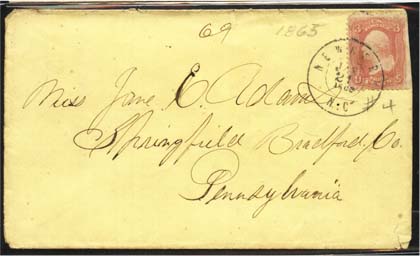 69 1863
NEW
N.C.
#4
Miss Jane E. Adams
Springfield Bradford. Co.
Pennsylvania